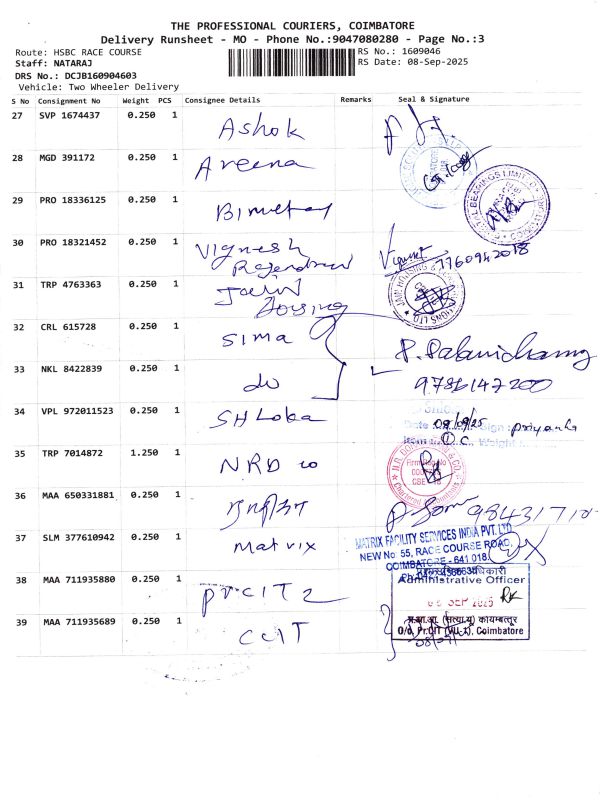 THE PROFESSIONAL COURIERS, COIMBATORE
Delivery Runsheet - MO - Phone No.:9047080280 - Page No.:3
Route: HSBC RACE COURSE
RS No.: 1609046
Staff: NATARAJ
RS Date: 08-Sep-2025
DRS No.: DCJB160904603
Vehicle: Two Wheeler Delivery
S No Consignment No Weight PCS Consignee Details Remarks Seal & Signature
27 SVP 1674437 0.250 1 Ashok
28 MGD 391172 0.250 1 Areena
29 PRO 18336125 0.250 1 Bimetay
30 PRO 18321452 0.250 1 Vignesh Rajendran
7760942018
31 TRP 4763363 0.250 1 Jain Housing
32 CRL 615728 0.250 1 SIMA
P. Palanichamy
33 NKL 8422839 0.250 1 do
9786147200
34 VPL 972011523 0.250 1 SHLoba
Date 08/09/25 Sign: Priyanka
35 TRP 7014872 1.250 1 NRD co
36 MAA 650331881 0.250 1
37 SLM 377610942 0.250 1 Matrix
MATRIX FACILITY SERVICES INDIA PVT. LTD.
NEW No 55, RACE COURSE ROAD,
COIMBATORE - 641 018.
38 MAA 711935880 0.250 1 Pr.CIT 2
Administrative Officer
SEP 2025
39 MAA 711935689 0.250 1 CCIT
O/o. Pr.CIT (VU-1), Coimbatore